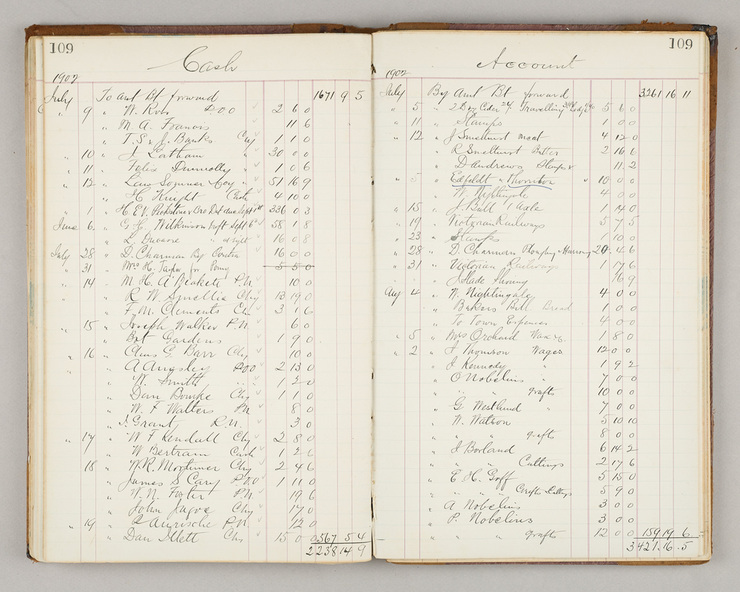 109
Cash
1902
July To amt Bt forward 1671 9 5
" 9 " W. Robs P.O.O 2 6 0
" M. A. Francis 11 6
" T. S. & J. Banks Chq 1 1 0
" 10 " J. Latham " 30 0 0
" 11 " Donnolly " 1 0 6
" 12 " Coy " 51 16 9
" H. Knight Cash 4 10 0
" 1 " H. E. V. 336 0 3
June 6 " G. H. Wilkinson Dft Sept 6th 58 1 8
" L. 16 0 8
July 28 " D. Charman By Contra 16 0 0
" 31 " Mrs H. for Pony 5 5 0
" 14 " M. H. A. P.N. 10 0
" R. W. Smellie Chq 13 19 0
" F. M. Clements Chq 3 1 6
" 15 " Joseph Walker P.N. 6 0
" Bot Gardens 1 9 0
" 16 " Chas G. Barr Chq 10 0
" A Aungsley P.O.O 2 13 0
" W. Smith " 1 2 0
" Dan Bourke Chq 1 1 0
" W. F. Walters P.N. 8 0
" J. Grant P.N. 3 0
" 17 " W. F. Kendall Chq 2 8 0
" W Bertram Cash 1 2 6
" 18 " W. R. Mortimer Chq 2 4 6
" James S Cary P.O.O 1 1 0
" W. N. Foster P.N. 19 6
" John Chq 17 0
" 19 " P.N. 12 0
" Dan Chq 15 0 0 567 5 4
2238 14 9
109
Account
1902
July By Amt Bt forward 3261 16 11
" 5 " Travelling 5 6 0
" 11 " Stamps 1 0 0
" 12 " J Smethurst meat 4 12 0
" R Smethurst Butter 2 16 6
" D Andrews 11 2
" " Thornton " 10 0 0
" W. Nightingale 4 0 0
" 15 " J Bull 1 Axle 1 14 0
" 19 " Victorian Railways 5 7 5
" 23 " Stamps 1 10 0
" 28 " D. Charman 20 4 6
" 31 " Victorian Railways 1 17 6
" Slade 16 9
Aug 4 " W. Nightingale 4 0 0
" Bakers Bill Bread 1 0 0
" To Town Expenses 4 0 0
" 5 " Mrs Orchard 1 8 0
" 2 " J Thomson Wages 12 0 0
" J Kennedy " 1 9 2
" O Nobelius " 7 0 0
" " " Grafts 10 0 0
" G. Westlund " 7 0 0
" W. Watson " 5 10 10
" " " Grafts 8 0 0
" J Borland 6 14 2
" " " Cuttings 2 17 6
" E. H. Goff 5 15 0
" " " Grafts Cuttings 5 9 0
" A Nobelius 3 0 0
" P. Nobelius 3 0 0
" " " Grafts 12 0 0 159 19 6
3421 16 5